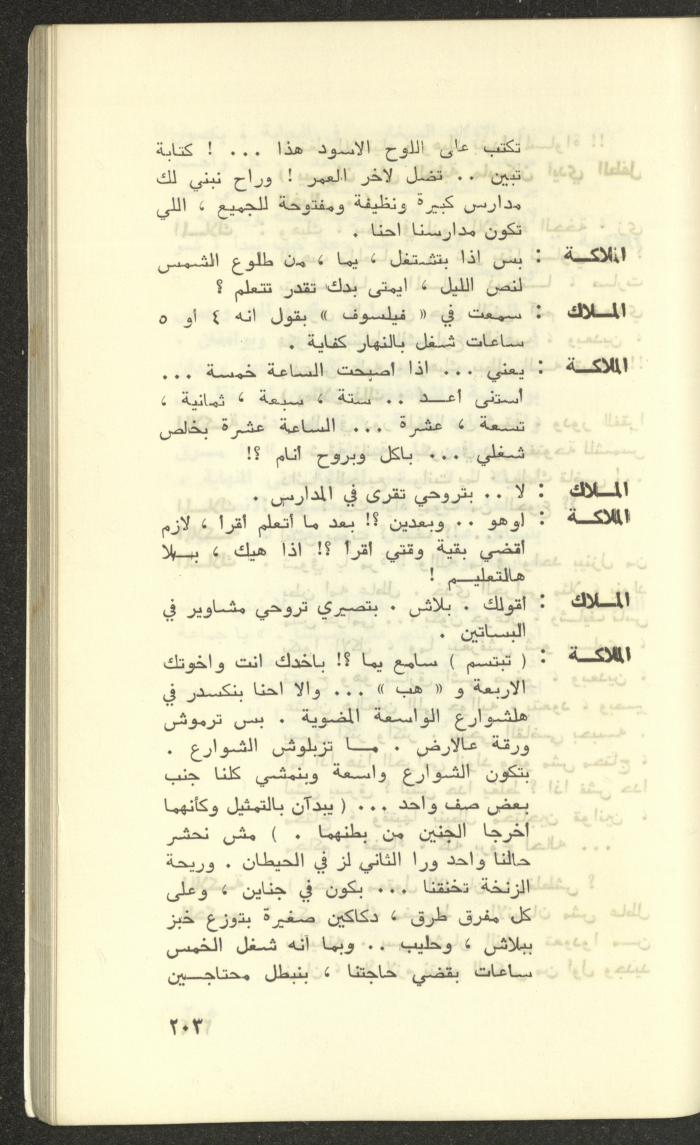 تكتب على اللوح الاسود هذا ... ! كتابة
تبين .. تضل لآخر العمر ! وراح نبني لك
مدارس كبيرة ونظيفة ومفتوحة للجميع ، اللي
تكون مدارسنا احنا .
الملاكة : بس اذا بتشتغل ، يما ، من طلوع الشمس
لنص الليل ، ايمتى بدك تقدر تتعلم ؟
المـلاك : سمعت في « فيلسوف » بقول انه ٤ او ٥
ساعات شغل بالنهار كفاية .
الملاكة : يعني ... اذا اصبحت الساعة خمسة ...
استنى اعـد .. ستة ، سبعة ، ثمانية ،
تسعة ، عشرة ... الساعة عشرة بخلص
شغلي ... باكل وبروح انام ؟!
المـلاك : لا .. بتروحي تقرى في المدارس .
الملاكة : اوهو .. وبعدين ؟! بعد ما أتعلم أقرا ، لازم
أقضي بقية وقتي أقرأ ؟! اذا هيك ، بـلا
هالتعليـم !
المـلاك : اقولك . بلاش . بتصيري تروحي مشاوير في
البساتين .
الملاكة : ( تبتسم ) سامع يما ؟! باخدك انت واخوتك
الاربعة و « هب » ... والا احنا بنكسدر في
هلشوارع الواسعة المضوية . بس ترموش
ورقة عالارض . مـا تزبلوش الشوارع .
بتكون الشوارع واسعة وبنمشي كلنا جنب
بعض صف واحد ... ( يبدآن بالتمثيل وكأنهما
أخرجا الجنين من بطنهما . ) مش نحشر
حالنا واحد ورا الثاني لز في الحيطان . وريحة
الزنخة تخنقنا ... بكون في جناين ، وعلى
كل مفرق طرق ، دكاكين صغيرة بتوزع خبز
ببلاش ، وحليب .. وبما انه شغل الخمس
ساعات بقضي حاجتنا ، بنبطل محتاجـين
٢٠٣